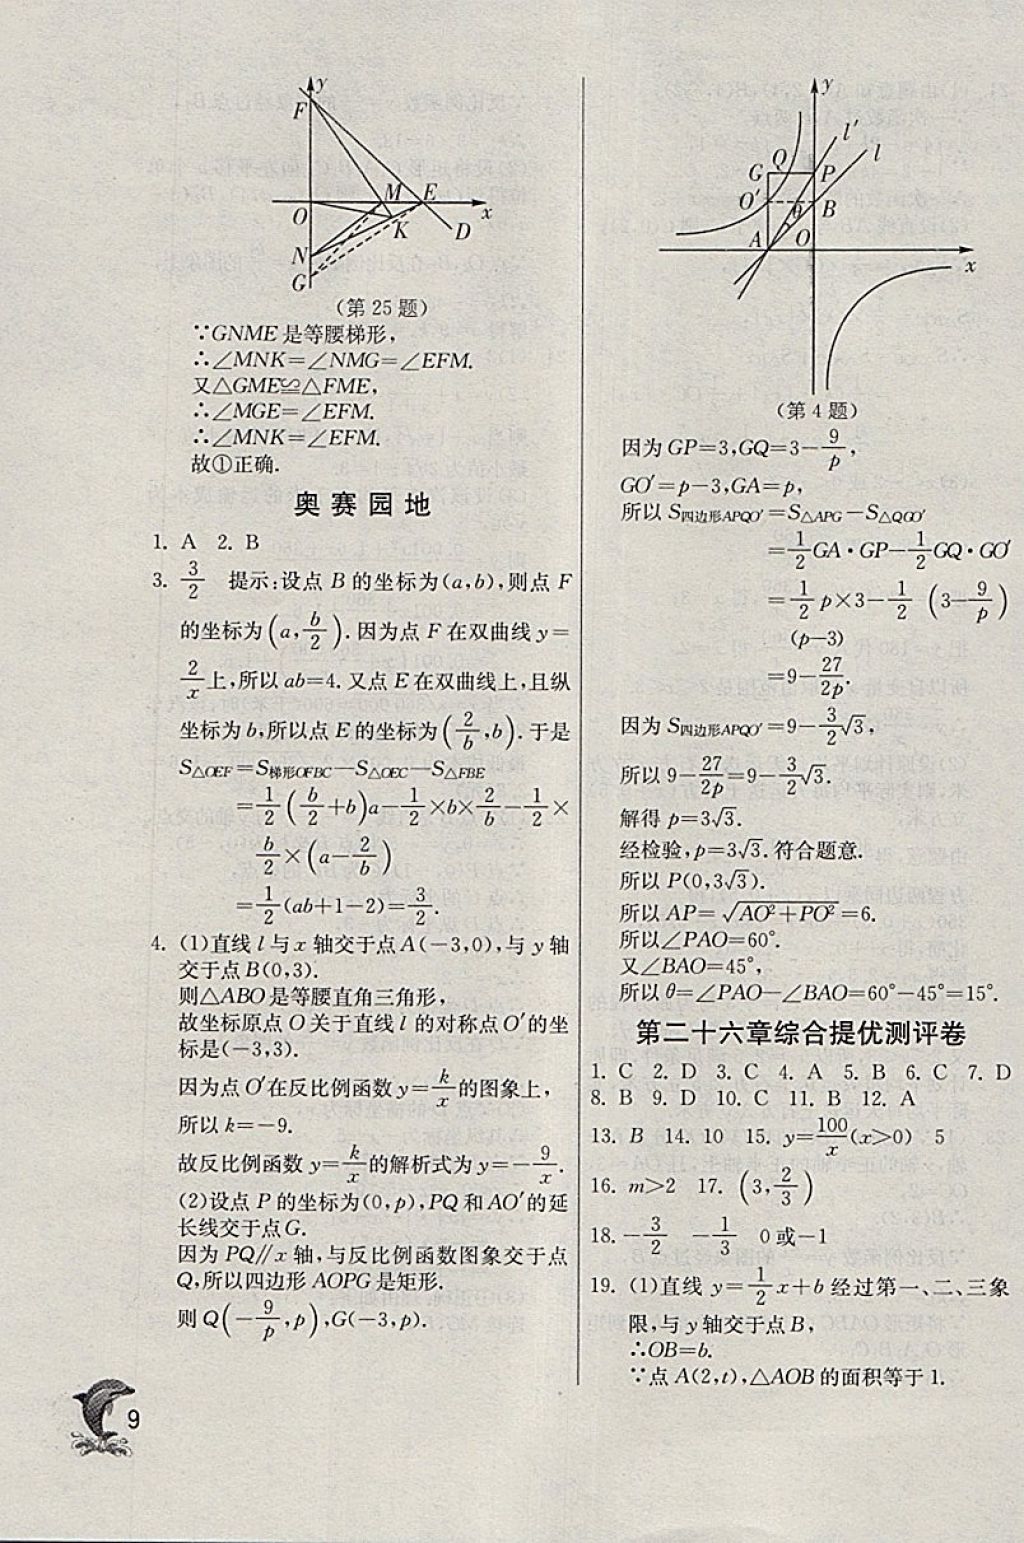 y
F
M
E
O
x
K
D
N
G
(第 25 题)
∵GNME 是等腰梯形,
∴∠MNK=∠NMG=∠EFM.
又△GME≌△FME,
∴∠MGE=∠EFM.
∴∠MNK=∠EFM.
故①正确.
奥 赛 园 地
1. A 2. B
3. 3/2 提示:设点 B 的坐标为(a,b),则点 F
的坐标为(a,b/2).因为点 F 在双曲线 y=
2/x上,所以 ab=4.又点 E 在双曲线上,且纵
坐标为 b,所以点 E 的坐标为(2/b,b).于是
S△OEF=S梯形OFBC—S△OEC—S△FBE
=1/2(b/2+b)a—1/2×b×2/b—1/2×
b/2×(a—2/b)
=1/2(ab+1—2)=3/2.
4. (1)直线 l 与 x 轴交于点 A(—3,0),与 y 轴
交于点 B(0,3).
则△ABO 是等腰直角三角形,
故坐标原点 O 关于直线 l 的对称点 O′的坐
标是(—3,3).
因为点 O′在反比例函数 y=k/x的图象上,
所以 k=—9.
故反比例函数 y=k/x的解析式为 y=—9/x.
(2)设点 P 的坐标为(0,p),PQ 和 AO′的延
长线交于点 G.
因为 PQ∥x 轴,与反比例函数图象交于点
Q,所以四边形 AOPG 是矩形.
则 Q(—9/p,p),G(—3,p).
9
y
l′
l
G
Q
P
O′
B
θ
A
O
x
(第 4 题)
因为 GP=3,GQ=3—9/p,
GO′=p—3,GA=p,
所以 S四边形APQO′=S△APG—S△QGO′
=1/2GA·GP—1/2GQ·GO′
=1/2p×3—1/2(3—9/p)
(p—3)
=9—27/2p.
因为 S四边形APQO′=9—3/2√3,
所以 9—27/2p=9—3/2√3.
解得 p=3√3.
经检验,p=3√3.符合题意.
所以 P(0,3√3).
所以 AP=√AO²+PO²=6.
所以∠PAO=60°.
又∠BAO=45°,
所以 θ=∠PAO—∠BAO=60°—45°=15°.
第二十六章综合提优测评卷
1. C 2. D 3. C 4. A 5. B 6. C 7. D
8. B 9. D 10. C 11. B 12. A
13. B 14. 10 15. y=100/x(x>0) 5
16. m>2 17. (3,2/3)
18. —3/2 —1/3 0 或—1
19. (1)直线 y=1/2x+b 经过第一、二、三象
限,与 y 轴交于点 B,
∴OB=b.
∵点 A(2,t),△AOB 的面积等于 1.